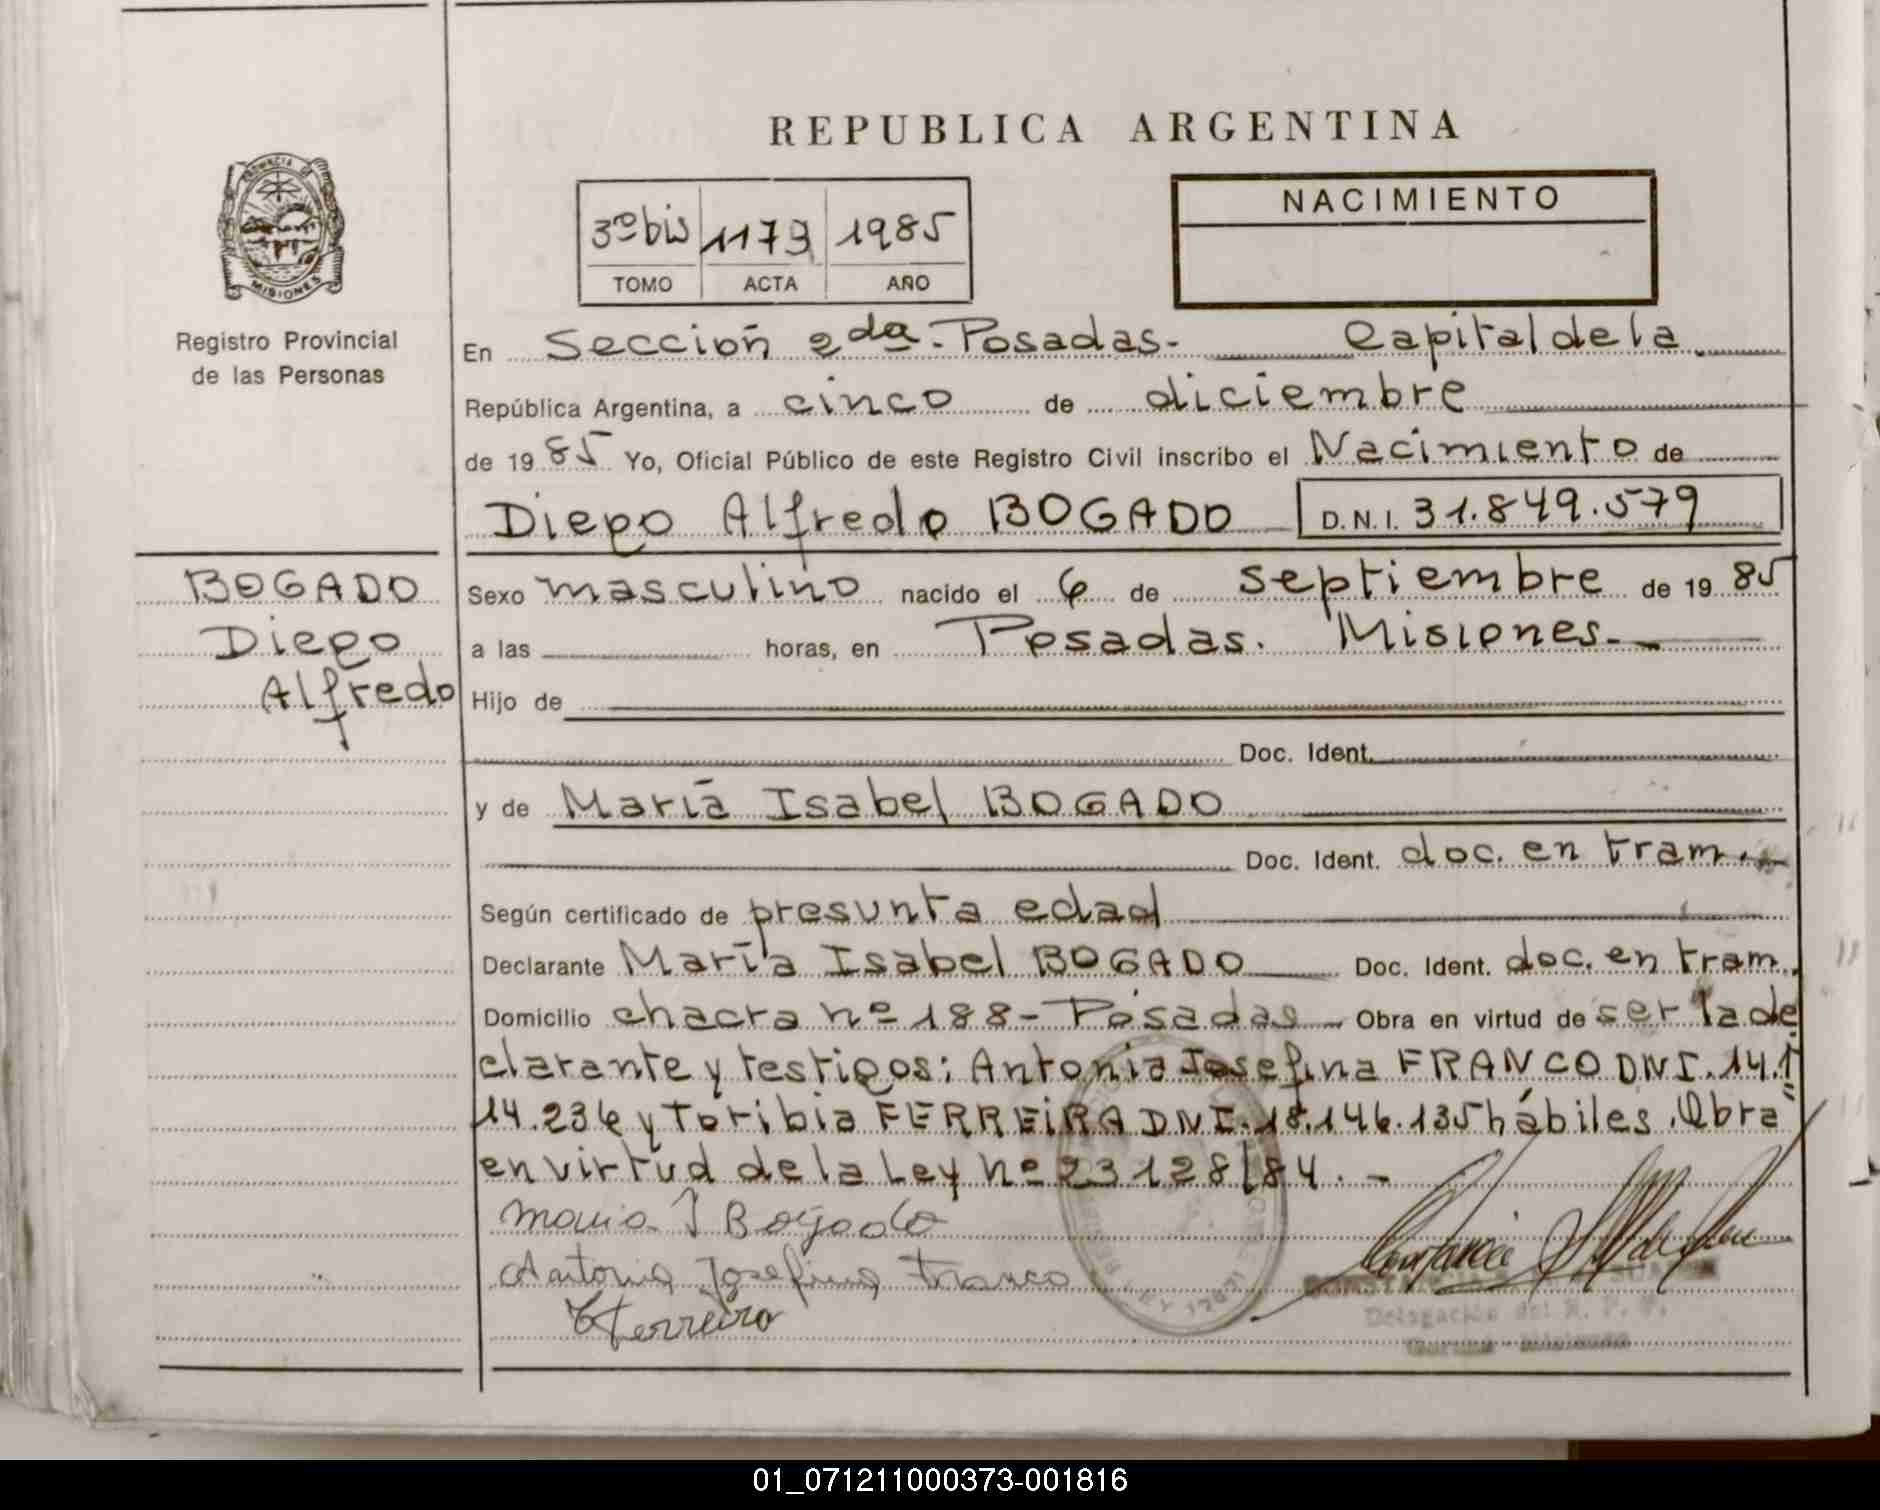 REPUBLICA ARGENTINA
PROVINCIA DE
MISIONES
Registro Provincial
de las Personas
3º bis 1179 1985
TOMO ACTA AÑO
NACIMIENTO
En Sección 2da. Posadas- Capital de la
República Argentina, a cinco de diciembre
de 1985 Yo, Oficial Público de este Registro Civil inscribo el Nacimiento de
Diego Alfredo BOGADO D.N.I. 31.849.579
BOGADO
Diego
Alfredo
Sexo masculino nacido el 6 de septiembre de 1985
a las horas, en Posadas. Misiones-
Hijo de
Doc. Ident.
y de María Isabel BOGADO
Doc. Ident. doc. en tram.-
Según certificado de presunta edad
Declarante María Isabel BOGADO Doc. Ident. doc. en tram.
Domicilio chacra nº 188- Posadas Obra en virtud de ser la de
clarante y testigos: Antonia Josefina FRANCO DNI. 14.1
14.236 y Toribia FERREIRA DNI. 18.146.135 hábiles. Obra
en virtud de la Ley nº 23128/84.-
Maria I Bogado
Antonia Josefina Franco
T Ferreira
Delegación del R. P. P.
01_071211000373-001816